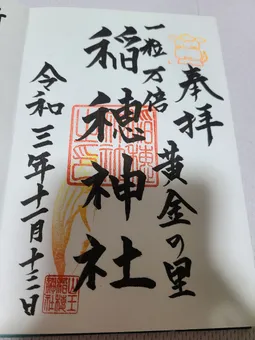 奉拝 黄金の里
一粒万倍
稲穂神社
令和三年十一月十二日